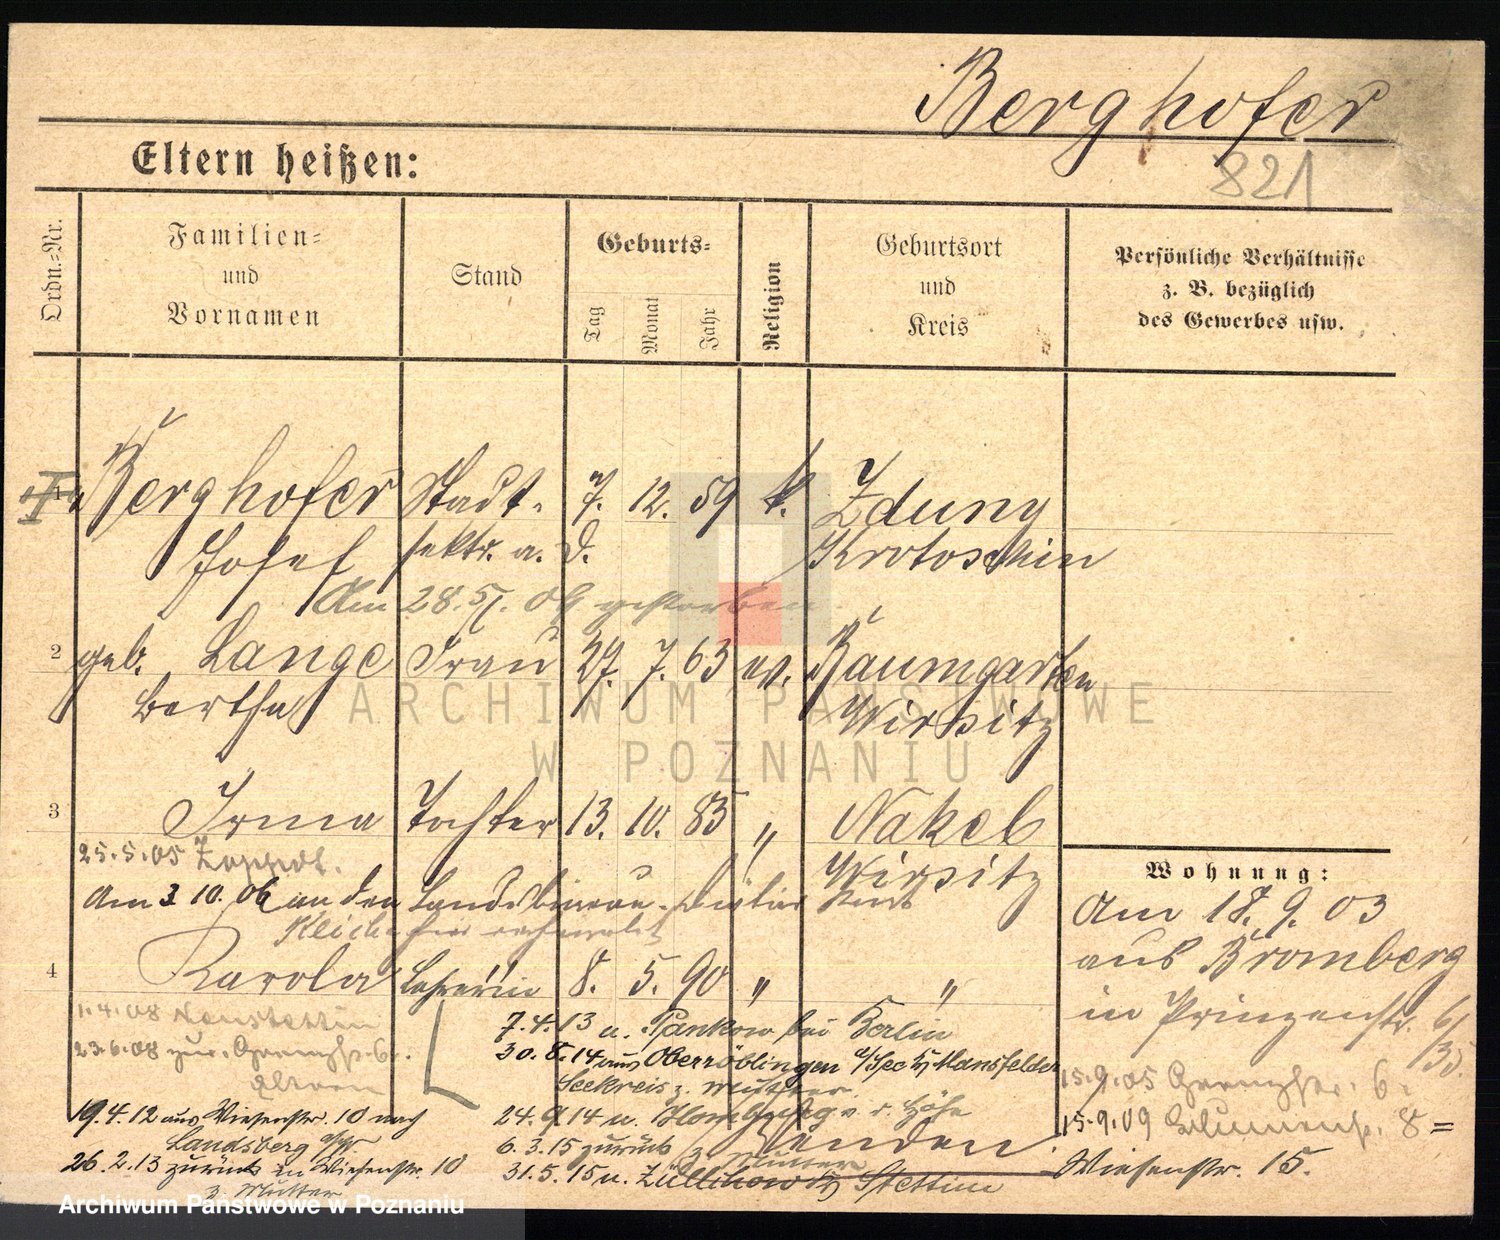 Berghofer
821
Eltern heißen:
Ordn.=Nr.
Familien=
und
Vornamen
Stand
Geburts=
Tag
Monat
Jahr
Religion
Geburtsort
und
Kreis
Persönliche Verhältnisse
z. B. bezüglich
des Gewerbes usw.
1 Berghofer Stadt- 7. 12. 59 k. Zduny
Josef sektr. a. D. Krotoschin
Am 28. 5. 09 gestorben
2 geb. Lange Frau 27. 7. 63 ev. Baumgarten
Bertha Wirsitz
3 Irma Tochter 13. 10. 85 " Nakel
Wirsitz
25.5.05 Zoppot.
Am 3 10. 06 an den Landsbureau-
4 Karola Lehrerin 8. 5. 90 " "
1.4.08 Neustettin
23.6.08 zur. Grenzstr. 6.
Eltern
19.4.12 aus Wiesenstr. 10 nach
Landsberg a/W.
26.2.13 zurück in Wiesenstr. 10
z. Mutter
7.4.13 n. Pankow bei Berlin
30.8.14 aus Oberröblingen a/See Kr Mansfelder
Seekreis z. Mutter
24.9.14 n. Homburg v. d. Höhe
6.3.15 zurück
z. Mutter
31.5.15 n. Züllchow Kr Stettin
wenden.
Wohnung:
Am 18. 9. 03
aus Bromberg
in Prinzenstr. 6/
35.
15.9.05 Grenzstr. 6.
15.9.09 Blumenstr. 8=
Wiesenstr. 15.
ARCHIWUM PAŃSTWOWE
W POZNANIU
Archiwum Państwowe w Poznaniu